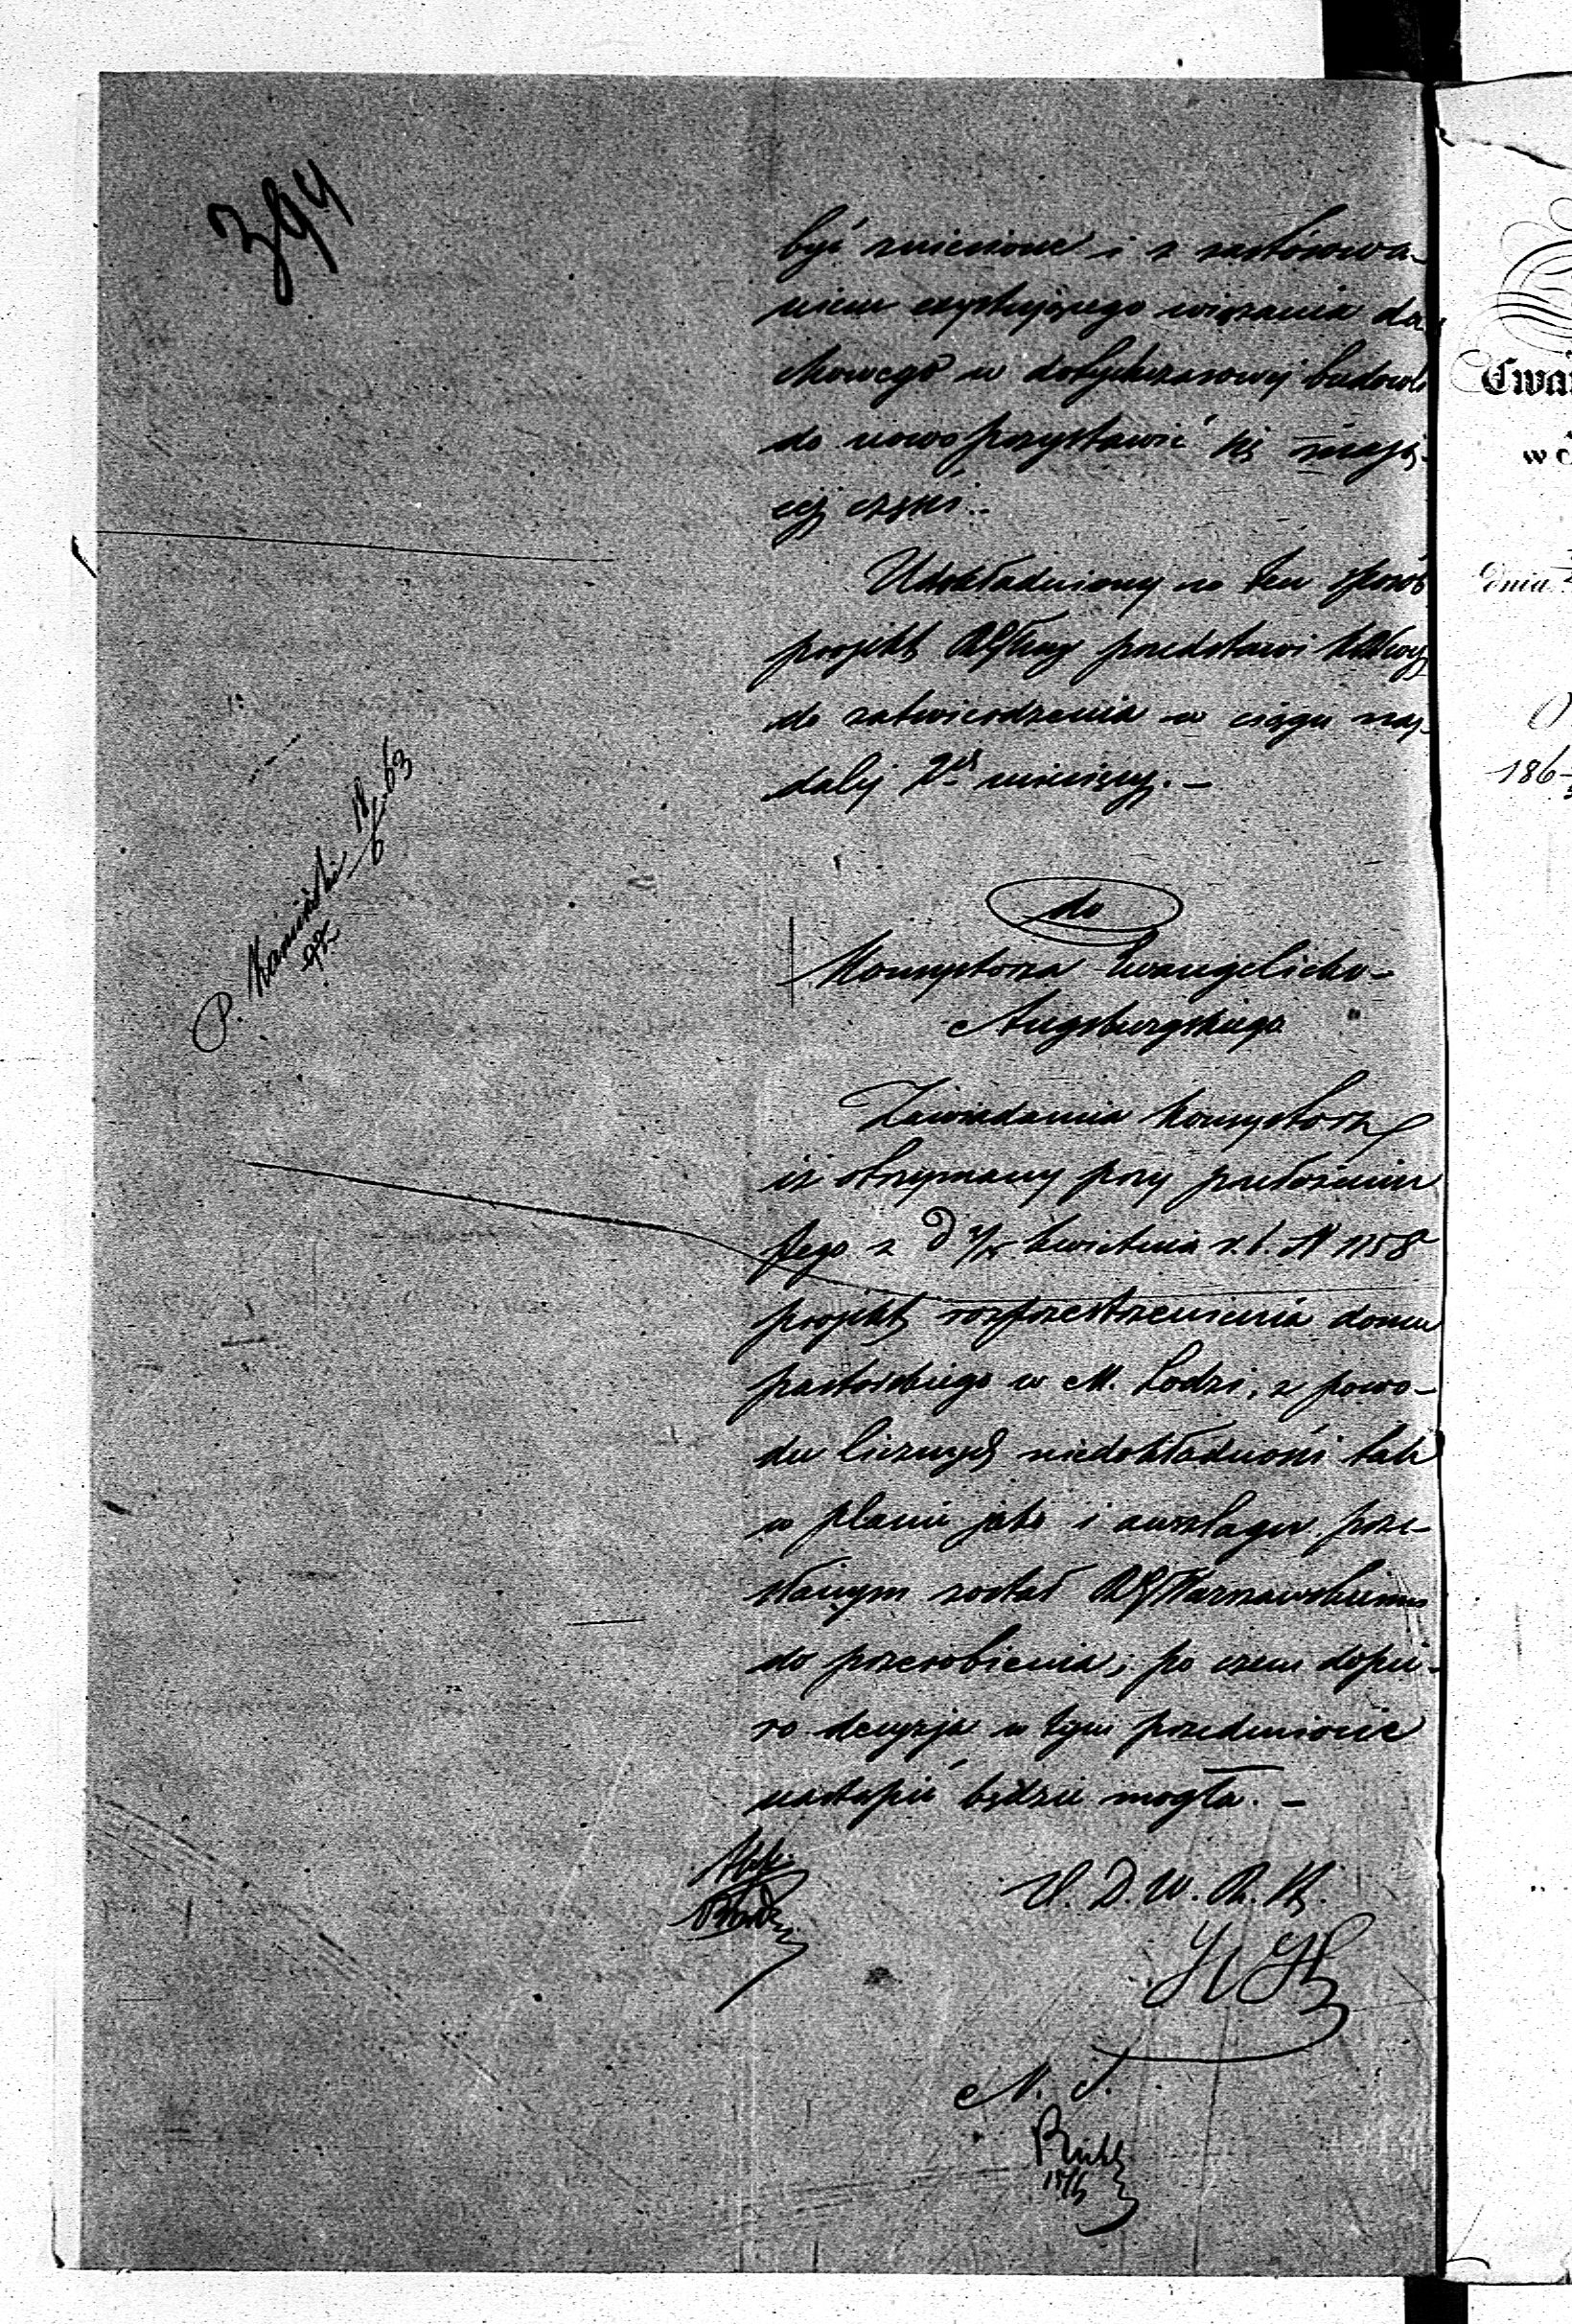 394
być zniesione i z zastósowa-
niem exystującego wiązania da-
chowego w dotychczasowej budowli
do nowo przystawić się mają-
cej części.-
Udokładniony na ten sposób
projekt RGbny przedstawi
do zatwierdzenia w ciągu naj-
dalej 2ch miesięcy. -
P. Kamiński 18/6 63
do
Konsystorza Ewangelicko-
Augsburgskiego
Zawiadamia Konsystorz
iż otrzymany przy przełożeniu
Jego z d kwietnia r. b. N 1158
projekt rozprzestrzenienia domu
pastorskiego w M. Łodzi, z powo-
du licznych niedokładności tak
w planie jako i anszlagu prze-
słanym został RG Warszawskiemu
do przerobienia; po czem dopie-
ro decyzja w tym przedmiocie
nastąpić będzie mogła. -
D. W.
N.
15/6
Ewa
w
dnia
186